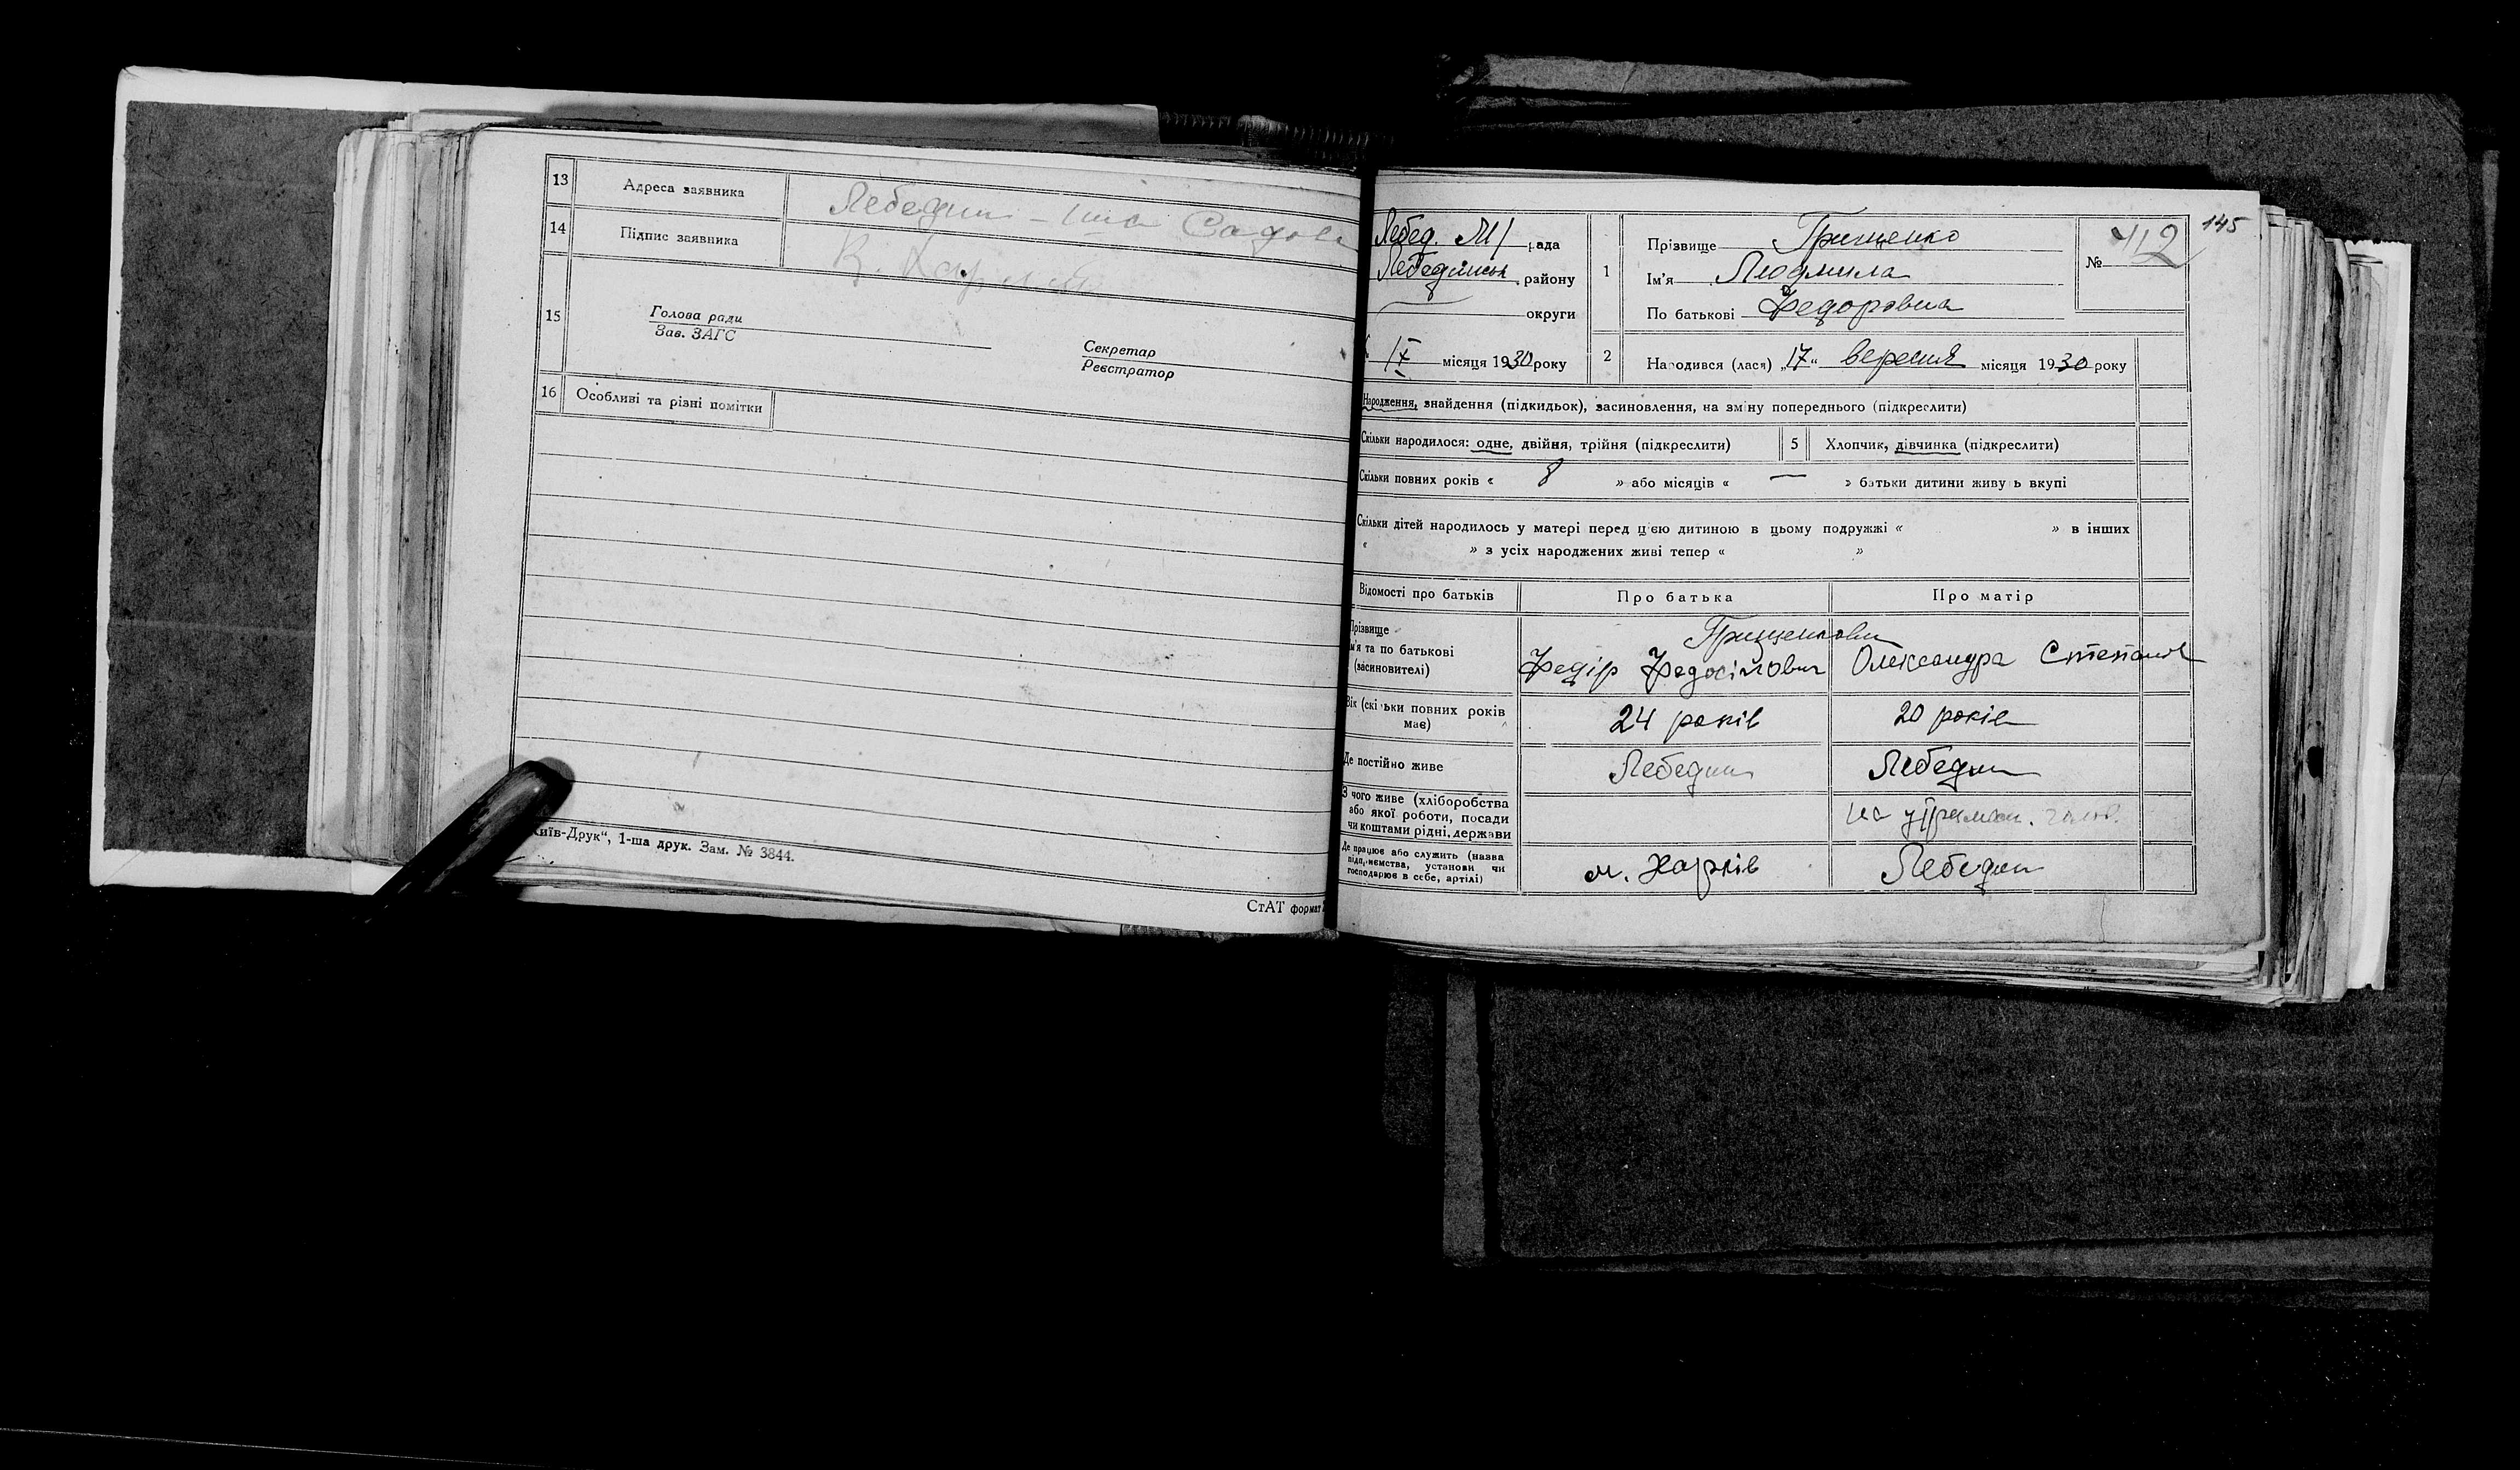 13 Адреса заявника Лебедин – 1ша Садова
14 Підпис заявника В.
15 Голова ради
Зав. ЗАГС
Секретар
Реєстратор
16 Особливі та різні помітки
"Київ-Друк“, 1-ша друк. Зам. № 3844.
СтАТ формат
145
Лебед. М/ рада
Лебединськ. району
округи
ІХ місяця 1930 року
1 Прізвище Грищенко
Ім'я Людмила
По батькові Федоровна
№ 412
2 Народився (лася) „17“ вересня місяця 1930 року
Народження, знайдення (підкидьок), засиновлення, на зміну попереднього (підкреслити)
Скільки народилося: одне, двійня, трійня (підкреслити) 5 Хлопчик, дівчинка (підкреслити)
Скільки повних років « 8 » або місяців « — » батьки дитини живуть вкупі
Скільки дітей народилось у матері перед цією дитиною в цьому подружжі « » в інших
« » з усіх народжених живі тепер « »
Відомості про батьків Про батька Про матір
Прізвище Грищенкови
ім'я та по батькові
(засновителі) Федір Федосійович Олександра Степанов
Вік (скільки повних років має) 24 років 20 років
Де постійно живе Лебедин Лебедин
З чого живе (хліборобства
або якої роботи, посади
чи коштами рідні, держави на утриман. чолов.
Де працює або служить (назва
підприємства, установи чи
господарює в себе, артілі) м. Харків Лебедин